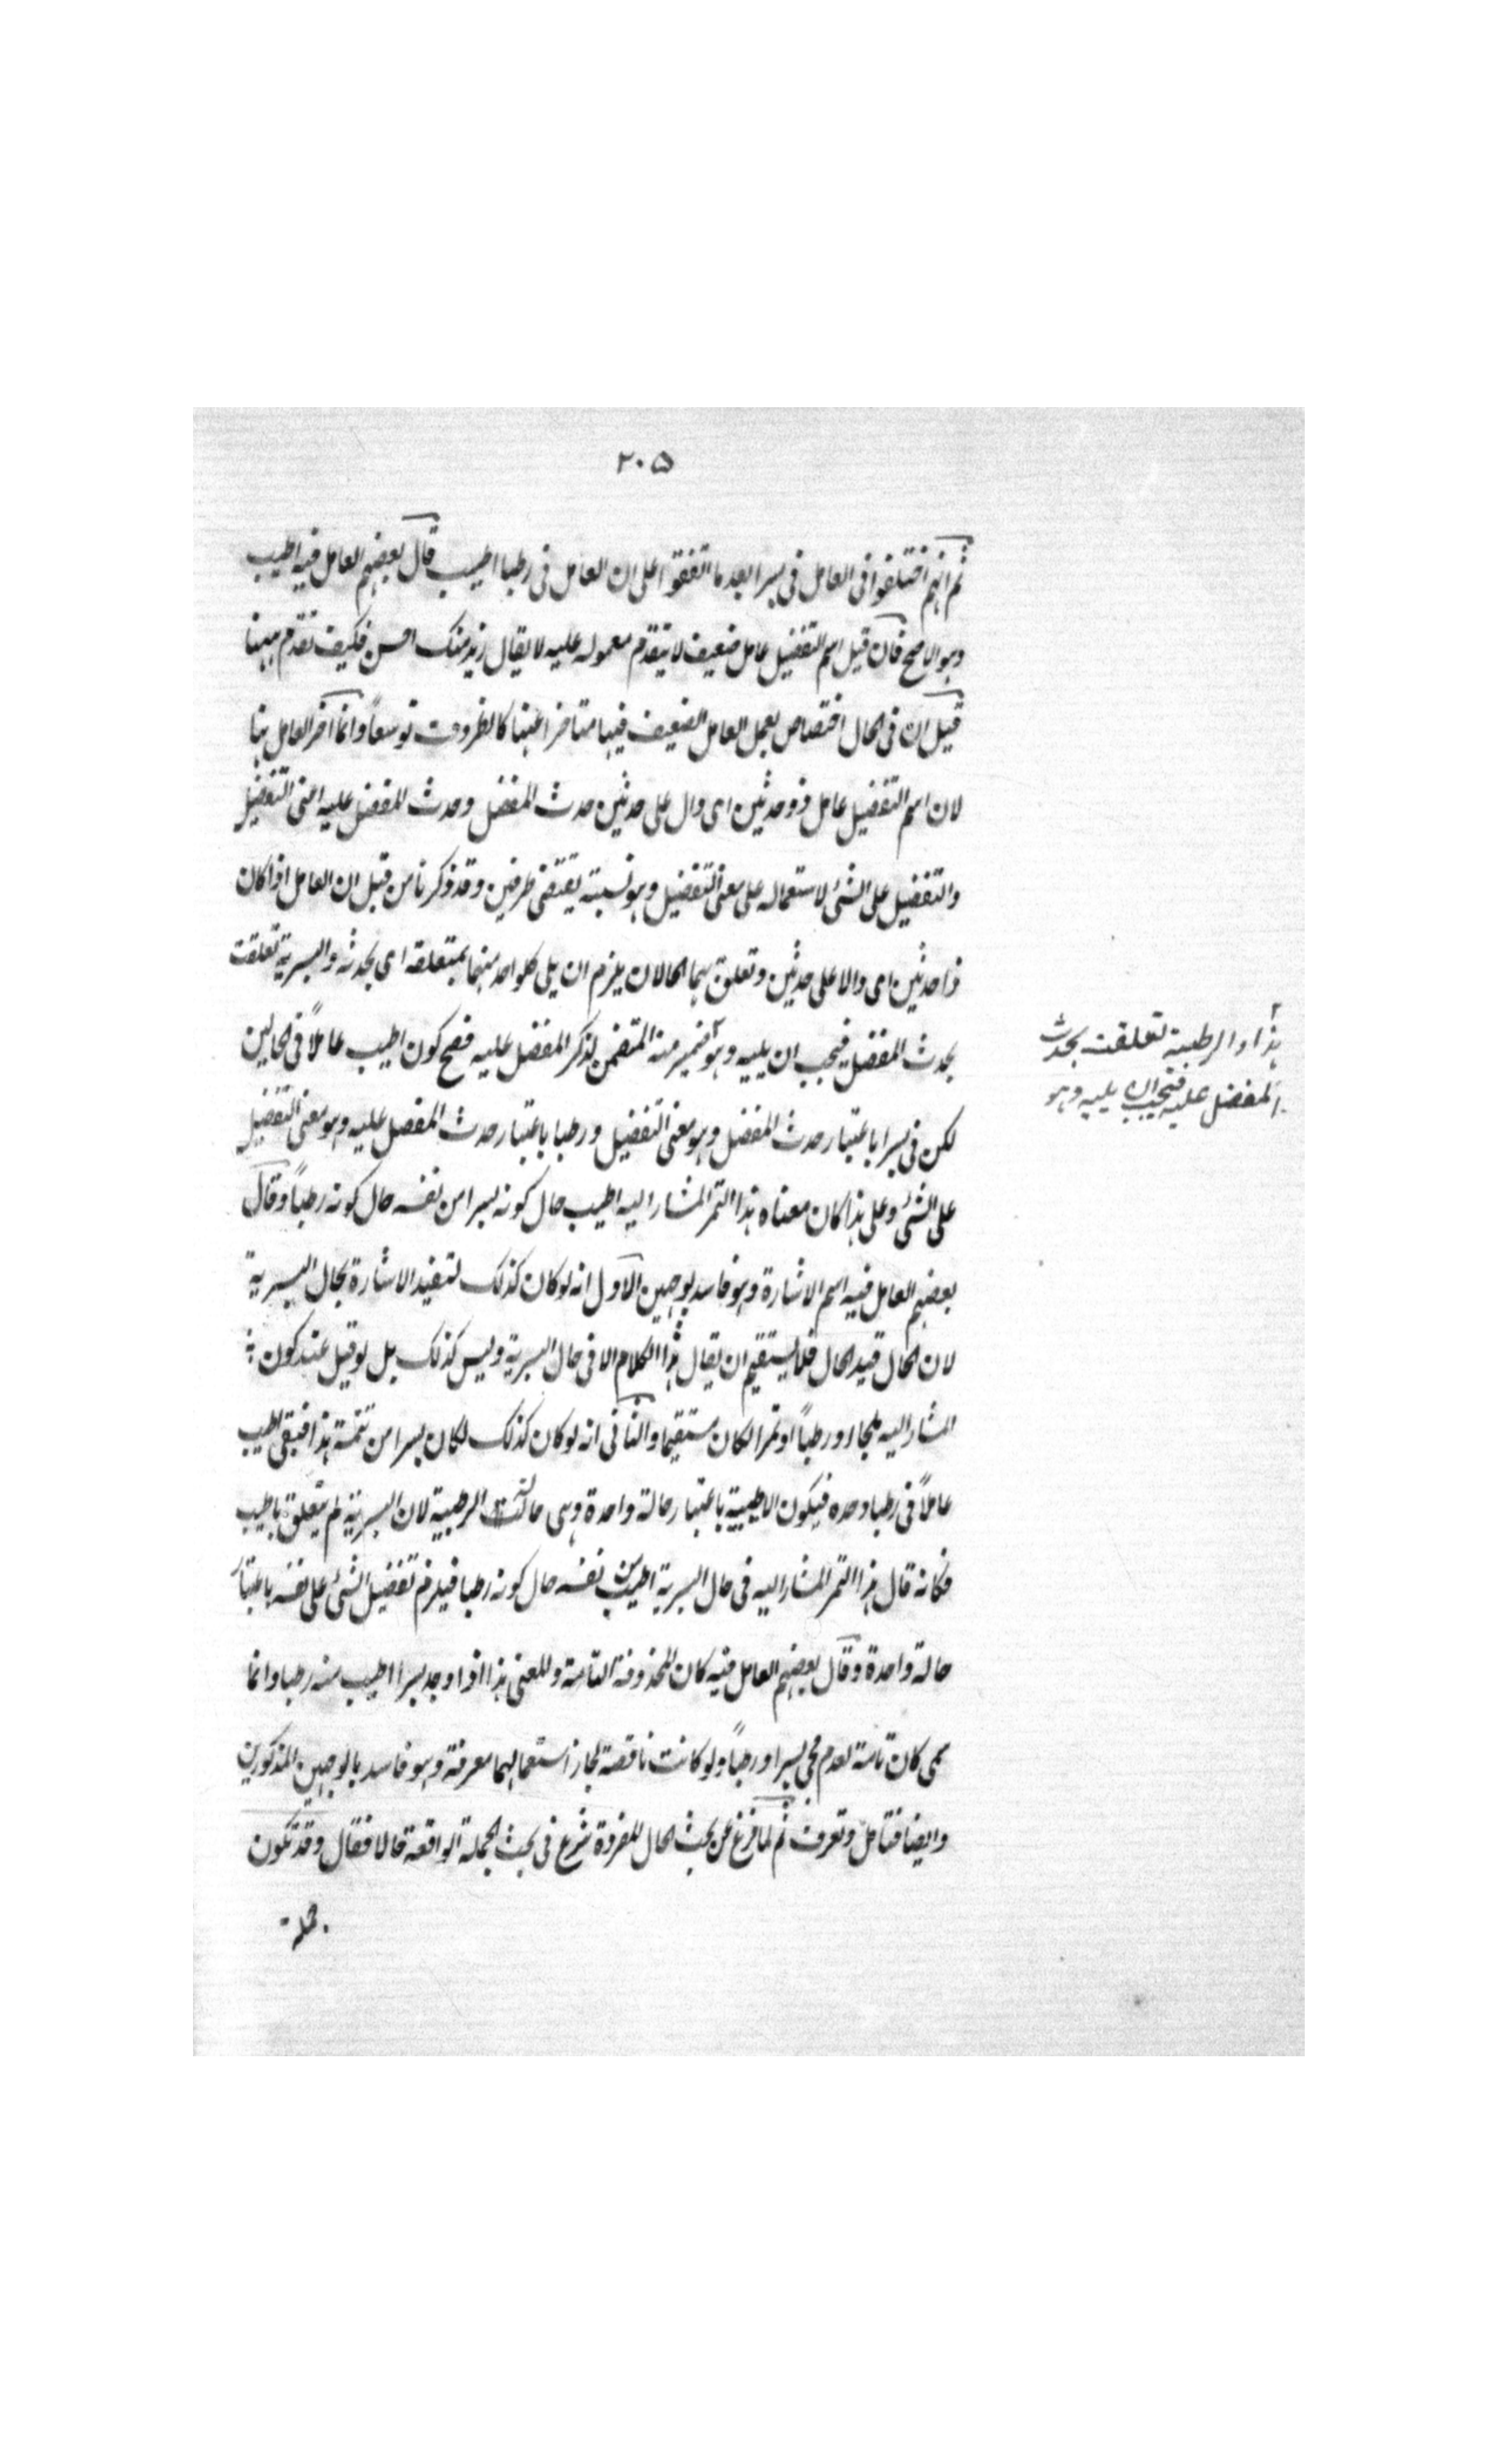 ٢٠٥
ثم انهم اختلفوا فى العامل فى بسرا بعد ما اتفقوا على ان العامل فى رطبا اطيب قال بعضهم العامل فيه اطيب
وهو الاصح فان قيل اسم التفضيل عامل ضعيف لا يتقدم معموله عليه لا يقال زيد منك احسن فكيف تقدم ههنا
قيل ان فى الحال اختصاص بعمل العامل الضعيف فيها متاخرا عنها كالظروف توسعاً وانما اخر العامل هنا
لان اسم التفضيل عامل ذو حدثين اى دال على حدثين حدث المفضل وحدث المفضل عليه اعنى التفضيل
والتفضيل على الشئ لاستعماله على معنى التفضيل وهو نسبة يقتضى طرفين وقد ذكرنا من قبل ان العامل اذا كان
ذا حدثين اى دالا على حدثين وتعلق بهما الحالان يلزم ان يلى كلواحد منهما بمتعلقه اى بحدثه والبسرية تعلقت
بحدث المفضل فيجب ان يليه وهو ضمير منه المتضمن لذكر المفضل عليه فصح كون اطيب عاملاً فى الحالين
هذا والرطبية تعلقت بحدث
المفضل عليه فيجب ان يليه وهو
لكن فى بسرا باعتبار حدث المفضل وهو معنى التفضيل ورطبا باعتبار حدث المفضل عليه وهو معنى التفضيل
على الشئ وعلى هذا كان معناه هذا التمر المشار اليه اطيب حال كونه بسرا من نفسه حال كونه رطباً وقال
بعضهم العامل فيه اسم الاشارة وهو فاسد بوجهين الاول انه لو كان كذلك لتقيد الاشارة بحال البسرية
لان الحال قيد الحال فلا يستقيم ان يقال هذا الكلام الا فى حال البسرية وليس كذلك بل لو قيل عند كون
المشار اليه رطباً او تمرا لكان مستقيما والثانى انه لو كان كذلك لكان بسرا من تتمة هذا فبقى اطيب
عاملاً فى رطبا وحده فيكون الاطيبية باعتبار حالة واحدة وهى حالة الرطبية لان البسرية لم يتعلق باطيب
فكانه قال هذا التمر المشار اليه فى حال البسرية اطيب من نفسه حال كونه رطبا فيلزم تفضيل الشئ على نفسه باعتبار
حالة واحدة وقال بعضهم العامل فيه كان المحذوفة التامة والمعنى هذا اذا وجد بسرا اطيب منه رطبا وانما
سمى كان تامة لعدم مجئ بسرا ورطباً ولو كانت ناقصة لجاز استعمالهما معرفة وهو فاسد بالوجهين المذكورين
وايضا فتامل وتعرف ثم لما فرغ عن بحث الحال المفردة شرع فى بحث الجملة الواقعة حالا فقال وقد تكون
جملة